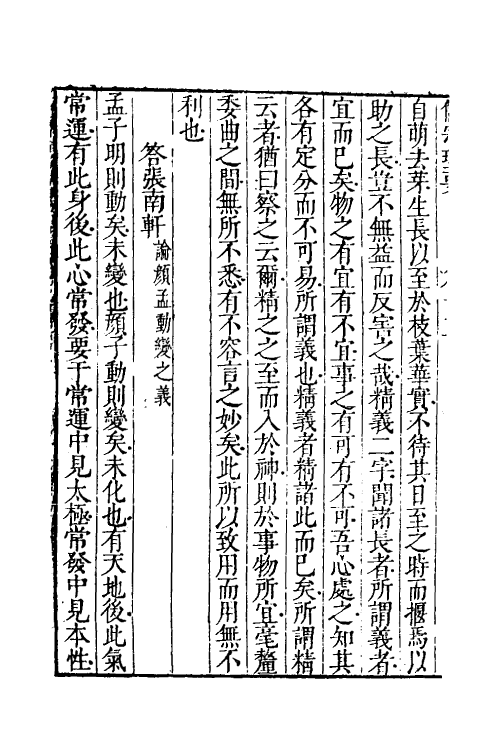 自萌去芽生長以至於枝葉華實不待其日至之時而揠焉以
助之長豈不無益而反害之哉精義二字聞諸長者所謂義者
宜而已矣物之有宜有不宜事之有可有不可吾心處之知其
各有定分而不可易所謂義也精義者精諸此而已矣所謂精
云者猶曰察之云爾精之之至而入於神則於事物所宜毫釐
委曲之間無所不悉有不容言之妙矣此所以致用而用無不
利也
答張南軒 論顔孟動變之義
孟子明則動矣未變也顔子動則變矣未化也有天地後此氣
常運有此身後此心常發要于常運中見太極常發中見本性